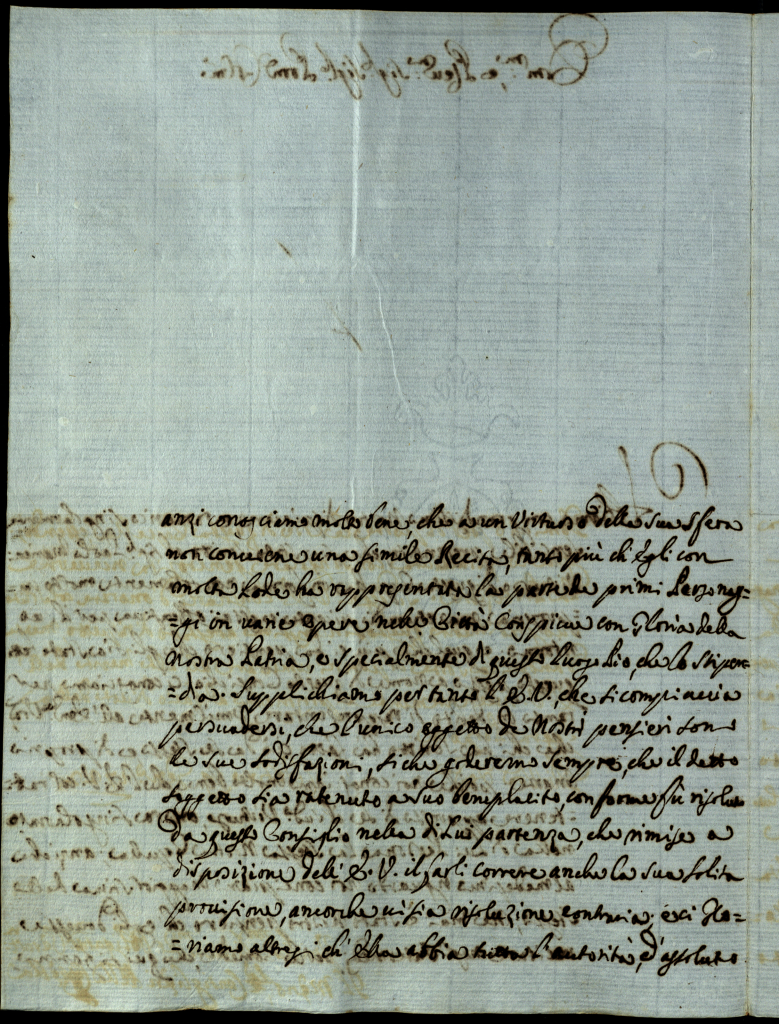 anzi conosciamo molto bene, che a un Virtuoso della sua sfera
non conviene una simile Recita, tanto più ch'Egli con
molta Lode ha rappresentata la parte de primi Personag=
=gi in varie opere nelle Città Conspicue con gloria della
nostra Patria, e specialmente di questo luogo Pio, che lo stipen=
=dia. Supplichiamo pertanto l'E.V., che si compiaccia
persuadersi, che l'unico oggetto de Nostri pensieri sono
le sue sodisfazioni, siche goderemo sempre, che il detto
soggetto sia ratenuto a suo beneplacito, conforme fù risoluto
da questo Consiglio nella di Lui partenza, che rimise a
disposizione dell'E.V. il farli correre anche la sua solita
provisione, ancorche vi sia risoluzione contraria; e ci glo=
=riamo altresì ch'Ella abbia tutta l'autorità, ed assoluto